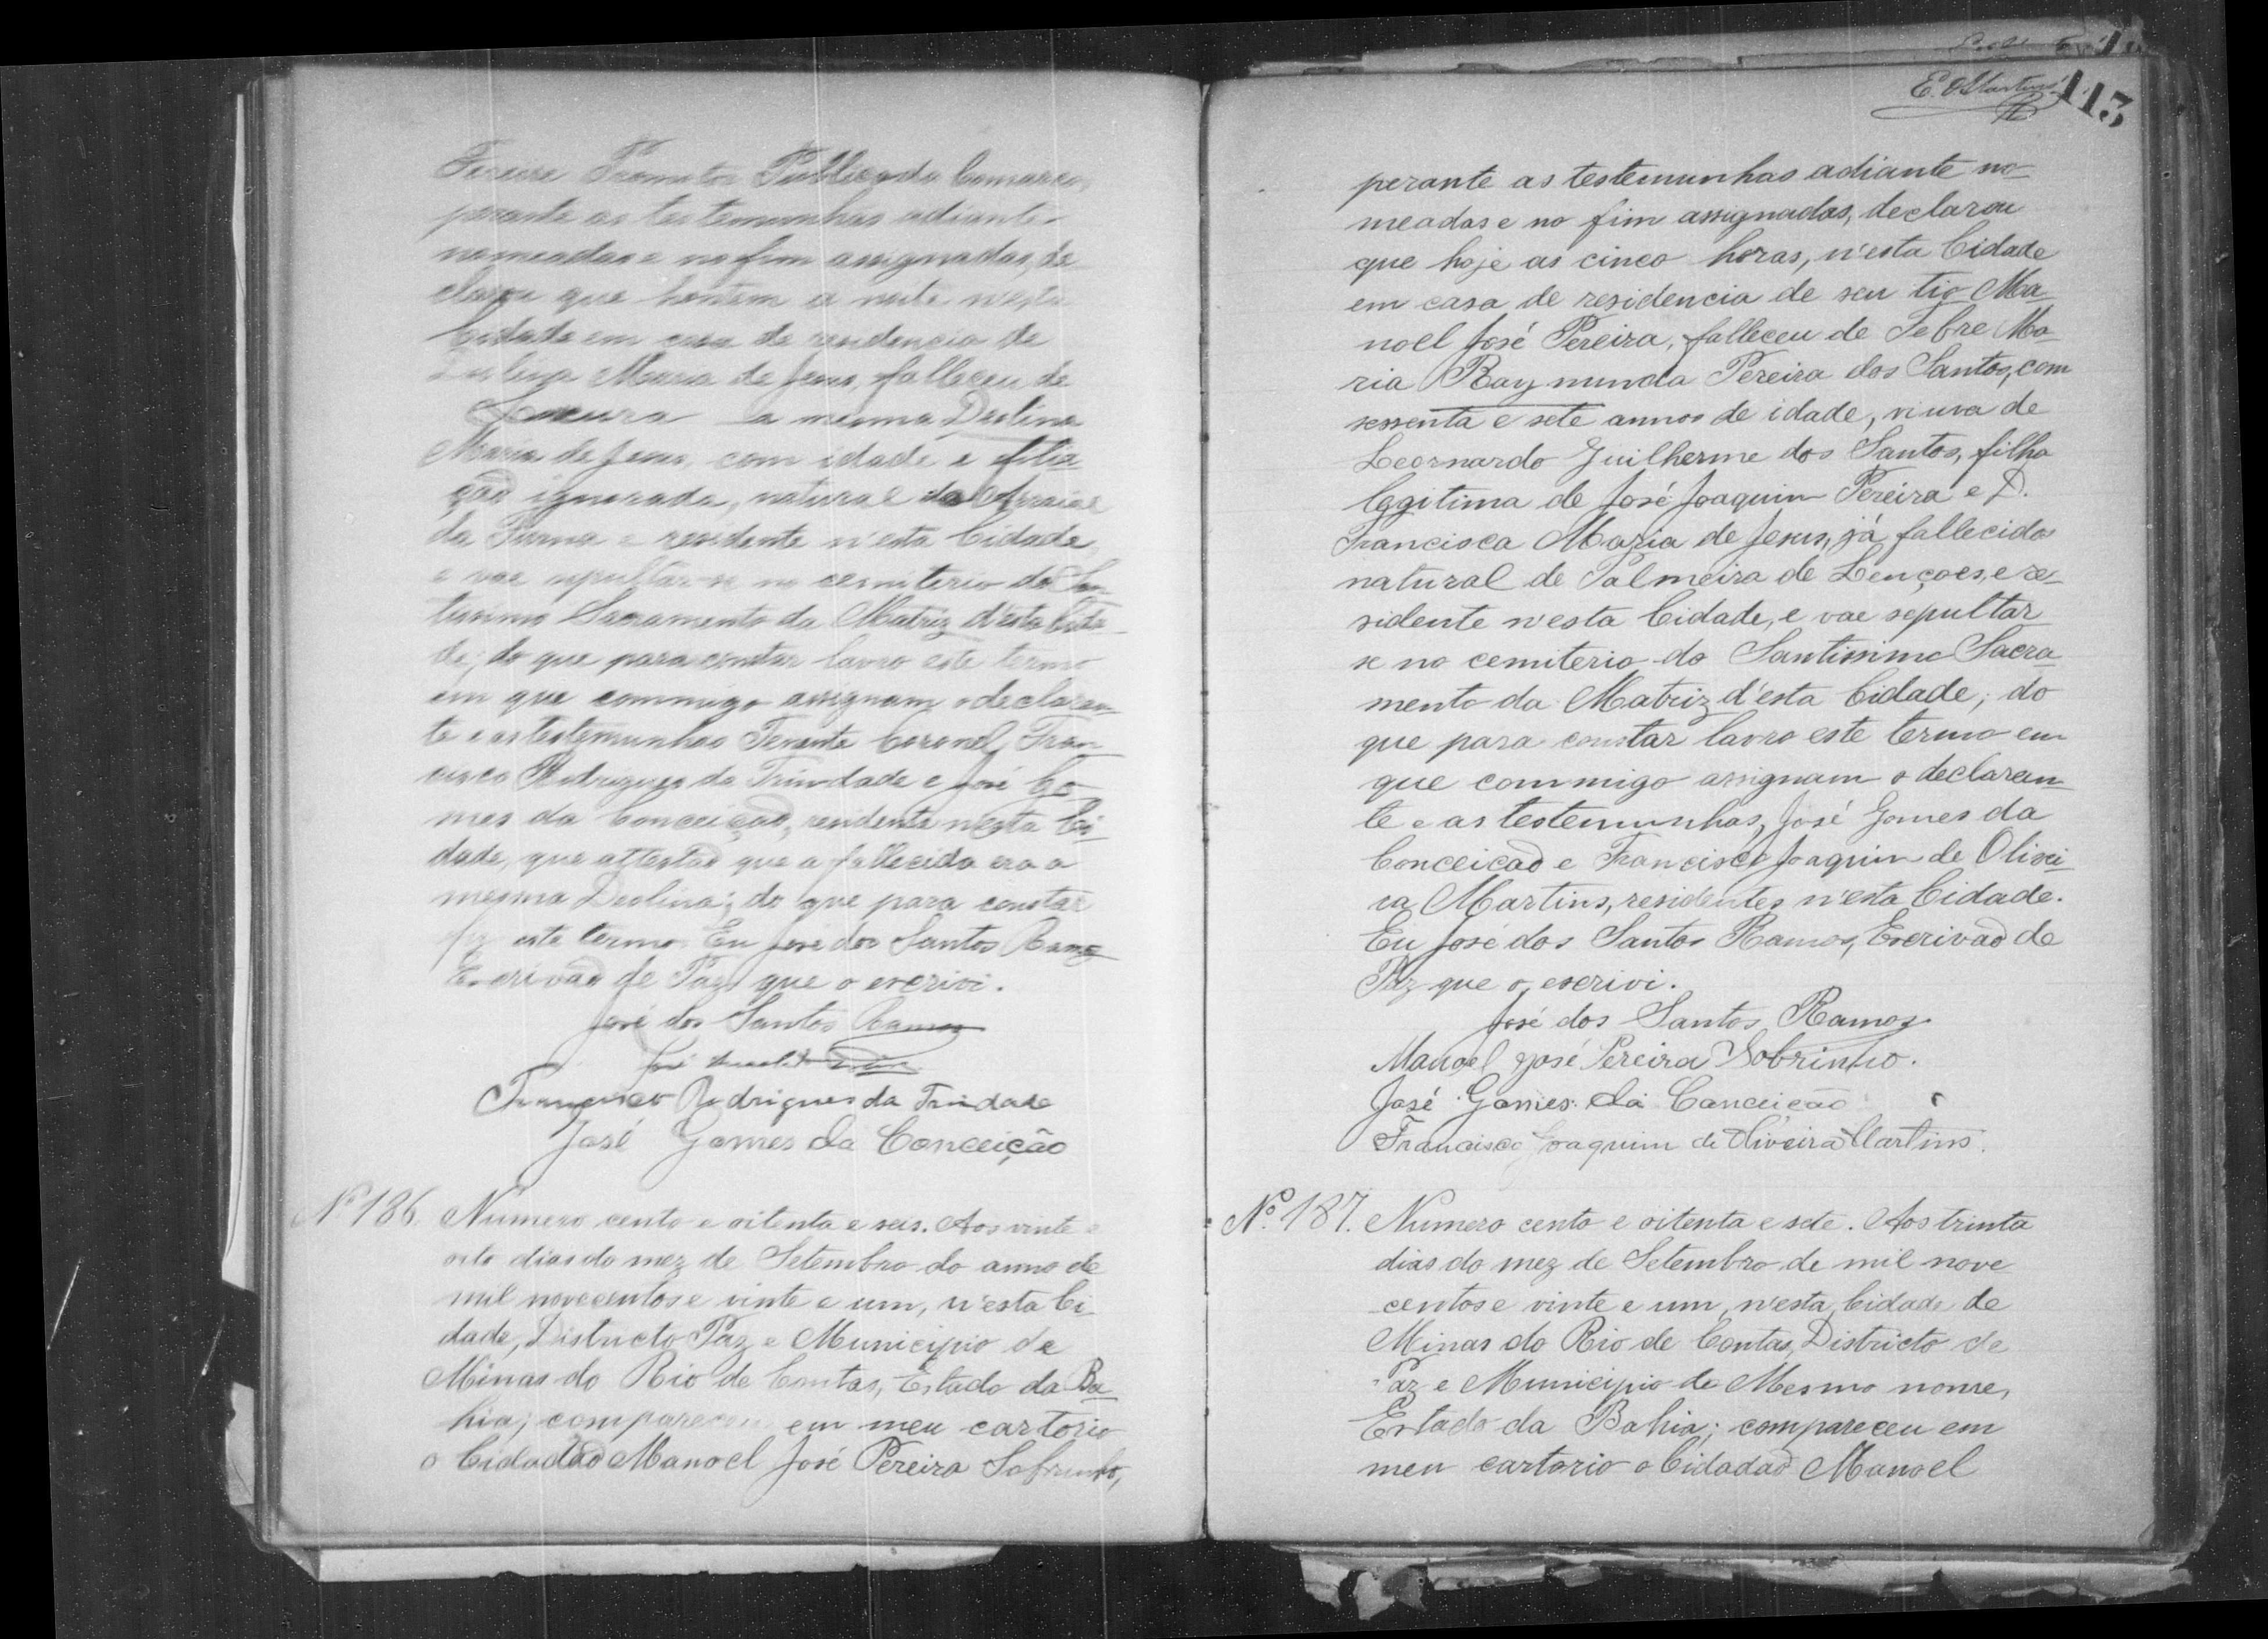 Promotor Publico da Comarca,
perante as testemunhas adiante
nomeadas e no fim assignadas, de
clarou que hontem a noite n'esta
Cidade em casa de residencia de
Maria de Jesus, falleceu de
a mesma Deolina
Maria de Jesus, com idade e filia
ção ignorada, natural do Arraial
da Furna e residente n'esta Cidade,
e vae sepultar-se no cemiterio do San
tissimo Sacramento da Matriz d'esta Cida
de; do que para constar lavro este termo
em que commigo assignam o declaran
te e as testemunhas Tenente Coronel Fran
cisco Rodrigues da Trindade e José Go
mes da Conceição, residente n'esta Ci
dade, que attestão que a fallecida era a
mesma Deolina; do que para constar
fiz este termo. Eu José dos Santos Ramos
Escrivão de Paz que o escrivi.
José dos Santos Ramos
José
Francisco Rodrigues da Trindade
José Gomes da Conceição
Nº 186. Numero cento e oitenta e seis. Aos vinte e
oito dias do mez de Setembro do anno de
mil novecentos e vinte e um, n'esta Ci
dade, Districto Paz e Municipio de
Minas do Rio de Contas, Estado da Ba
hia; compareceu em meu cartorio
o Cidadão Manoel José Pereira Sobrinho,
E. O. Martins
113
perante as testemunhas adiante no
meadas e no fim assignadas, declarou
que hoje as cinco horas, n'esta Cidade
em casa de residencia de seu tio Ma
noel José Pereira, falleceu de Febre Ma
ria Raymunda Pereira dos Santos, com
sessenta e sete annos de idade, viuva de
Leornardo Guilherme dos Santos, filha
legitima de José Joaquim Pereira e D.
Francisca Maria de Jesus, já fallecidos
natural de Palmeira de Lençoes, e re
sidente n'esta Cidade, e vae sepultar
se no cemiterio do Santissimo Sacra
mento da Matriz d'esta Cidade; do
que para constar lavro este termo em
que commigo assignam o declaran
te e as testemunhas, José Gomes da
Conceicão e Francisco Joaquim de Olivei
ra Martins, residentes n'esta Cidade.
Eu José dos Santos Ramos, Escrivão de
Paz que o escrivi.
José dos Santos Ramos
Manoel José Pereira Sobrinho.
José Gomes da Conceição
Francisco Joaquim de Oliveira Martins.
Nº 187. Numero cento e oitenta e sete. Aos trinta
dias do mez de Setembro de mil nove
centos e vinte e um, n'esta Cidade de
Minas do Rio de Contas, Districto de
Paz e Municipio do Mesmo nome,
Estado da Bahia; compareceu em
meu cartorio o Cidadão Manoel